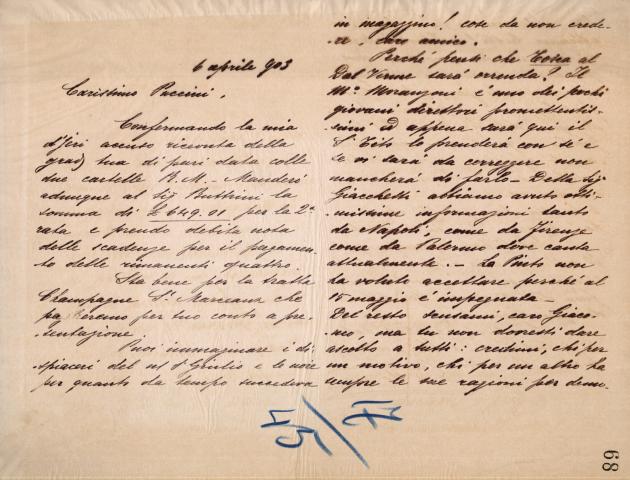 6 aprile 903
Carissimo Puccini,
Confermando la mia
d'jeri accuso ricevuta della
grad) tua di pari data colle
due cartelle B. M. - Manderò
adunque al Sig Buttrini la
somma di £ 649.01 per la 2a
rata e prendo debita nota
delle scadenze per il pagamen-
to delle rimanenti quattro.
Sta bene per la tratta
Champagne St Marceaux che
pagheremo per tuo conto a pre-
sentazione.
Puoi immaginare i di-
spiaceri del Giulio e le
per quanto da tempo succedeva
in magazzino! cose da non crede-
re, caro amico.
Perchè pensi che Tosca al
Dal Verme sarà orrenda? Il
Mo Moranzoni è uno dei pochi
giovani direttori promettentis-
simi ed appena sarà qui il
Sr Tito lo prenderà con sè e
se vi sarà da correggere non
mancherà di farlo - Della Sig
Giacchetti abbiamo avuto otti-
missime informazioni tanto
da Napoli, come da Firenze
come da Palermo dove canta
attualmente. - La Pinto non
ha voluto accettare perchè al
15 maggio è impegnata -
Del resto scusami, caro Giaco-
mo, ma tu non dovresti dare
ascolto a tutti: credimi, chi per
un motivo, chi per un altro ha
sempre le sue ragioni per denu-
68